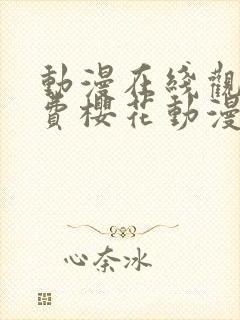 動漫在綫觀
費櫻花動漫
心奈冰